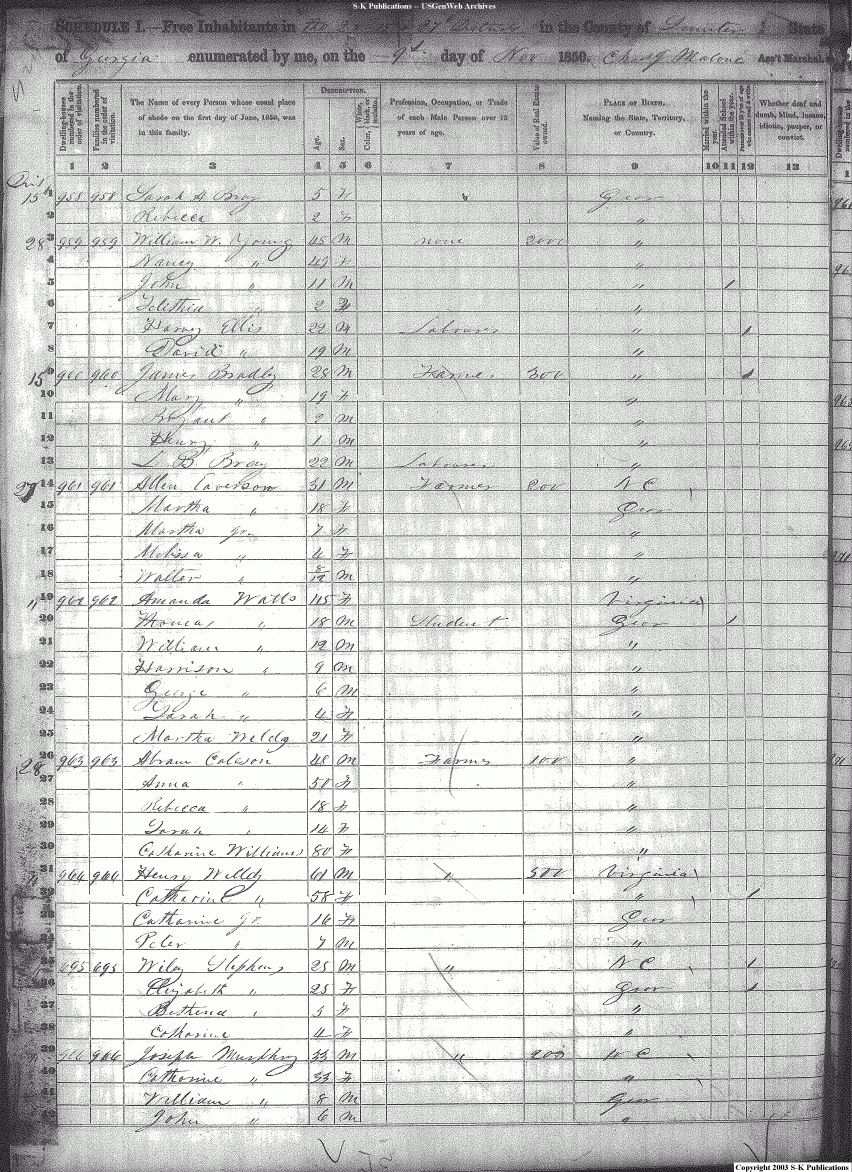 S-K Publications -- USGenWeb Archives
SCHEDULE I.—Free Inhabitants in the in the County of Sumter State
of Georgia enumerated by me, on the 9th day of Nov 1850. Chas J Malone Ass't Marshal.
DESCRIPTION.
Dwelling-houses numbered in the order of visitation.
Families numbered in the order of visitation.
The Name of every Person whose usual place of abode on the first day of June, 1850, was in this family.
Age.
Sex.
Color, White, black, or mulatto.
Profession, Occupation, or Trade of each Male Person over 15 years of age.
Value of Real Estate owned.
PLACE OF BIRTH. Naming the State, Territory, or Country.
Married within the year.
Attended School within the year.
Persons over 20 y'rs of age who cannot read & write.
Whether deaf and dumb, blind, insane, idiotic, pauper, or convict.
1 2 3 4 5 6 7 8 9 10 11 12 13
15 1 958 958 Sarah A Bray 5 F Geor
2 Rebecca 2 F "
28 3 959 959 William W. Young 45 M none 2000 "
4 Nancy " 42 F "
5 John " 11 M " /
6 " 2 F "
7 Harvey Ellis 22 M Labourer " /
8 David " 19 M "
15 9 960 960 James Bradly 28 M Farmer 300 " /
10 Mary " 19 F "
11 Bryant " 2 M "
12 Henry " 1 M "
13 L B Bray 22 M Labourer "
27 14 961 961 Allen Caverson 31 M Farmer 200 N C
15 Martha " 18 F Geor
16 Martha Jr. 7 F "
17 Melissa " 4 F "
18 Walter " 8/12 M "
" 19 962 962 Amanda Watts 45 F Virginia
20 Thomas " 18 M Student Geor /
21 William " 12 M "
22 Harrison " 9 M "
23 George " 6 M "
24 Sarah " 4 F "
25 Martha Weldy 21 F "
28 26 963 963 Abram Coleson 48 M Farmer 100 "
27 Anna " 50 F "
28 Rebecca " 18 F "
29 Sarah " 14 F "
30 Catharine Williams 80 F "
31 964 964 Henry Willdy 61 M " 500 Virginia
32 Catharine " 58 F " /
33 Catharine Jr. 16 F Geor
34 Peter " 7 M "
35 695 695 Wiley Stephens 25 M " N C /
36 Elizabeth " 25 F Geor /
37 " 5 F "
38 Catharine 4 F "
39 966 966 Joseph Murphry 33 M " 200 N C
40 Catharine " 33 F "
41 William " 8 M Geor
42 John " 6 M "
Copyright 2003 S-K Publications